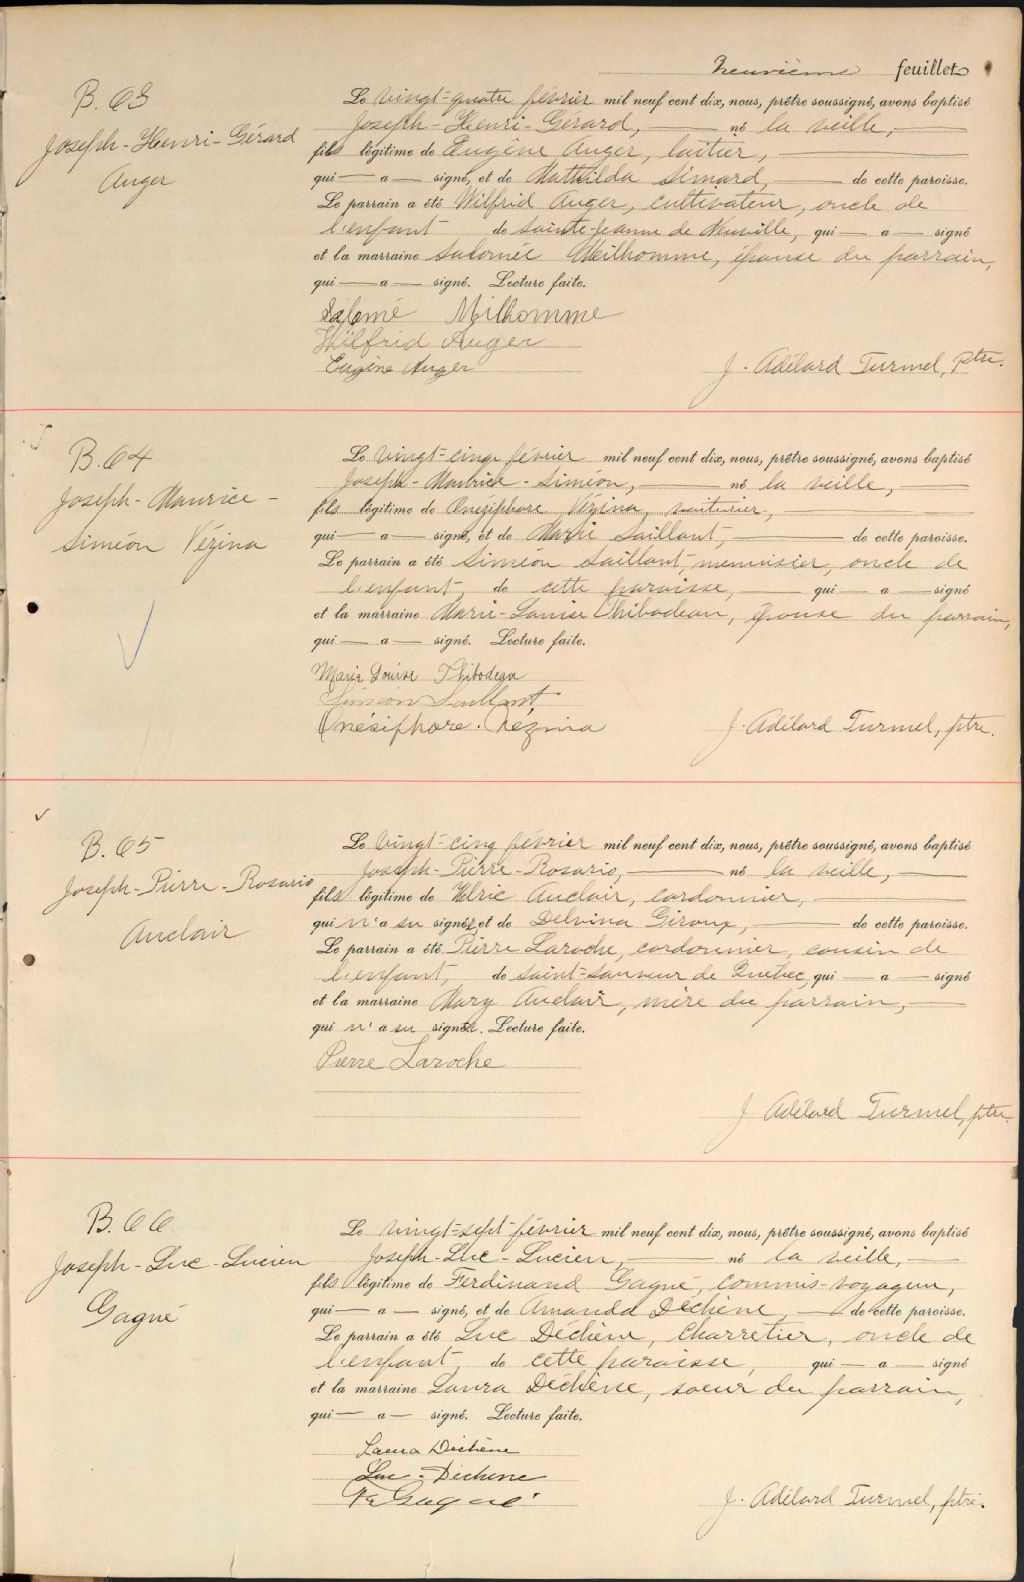 Neuvième feuillet
B. 63
Joseph-Henri-Gérard
Auger
Le vingt-quatre février mil neuf cent dix, nous, prêtre soussigné, avons baptisé
Joseph-Henri-Gérard, né la veille,
fils légitime de Eugène Auger, laitier,
qui — a — signé, et de Mathilda Simard, de cette paroisse.
Le parrain a été Wilfrid Auger, cultivateur, oncle de
l'enfant de Sainte-Jeanne de Neuville, qui — a — signé
et la marraine Salomée Meilhomme, épouse du parrain,
qui — a — signé. Lecture faite.
Salomé Milhomme
Wilfrid Auger
Eugène Auger
J. Adélard Turmel, ptre.
B. 64
Joseph-Maurice-
Siméon Vézina
Le vingt-cinq février mil neuf cent dix, nous, prêtre soussigné, avons baptisé
Joseph-Maurice-Siméon, né la veille,
fils légitime de Onésiphore Vézina, voiturier,
qui — a — signé, et de Marie Saillant, de cette paroisse.
Le parrain a été Siméon Saillant, menuisier, oncle de
l'enfant, de cette paroisse, qui — a — signé
et la marraine Marie-Louise Thibodeau, épouse du parrain,
qui — a — signé. Lecture faite.
Marie Louise Thibodeau
Siméon Saillant
Onésiphore Vézina
J. Adélard Turmel, ptre.
B. 65
Joseph-Pierre-Rosario
Auclair
Le vingt-cinq février mil neuf cent dix, nous, prêtre soussigné, avons baptisé
Joseph-Pierre-Rosario, né la veille,
fils légitime de Ulric Auclair, cordonnier,
qui n'a su signer et de Delvina Giroux, de cette paroisse.
Le parrain a été Pierre Laroche, cordonnier, cousin de
l'enfant, de Saint-Sauveur de Québec, qui — a — signé
et la marraine Mary Auclair, mère du parrain,
qui n'a su signer. Lecture faite.
Pierre Laroche
J. Adélard Turmel, ptre.
B. 66
Joseph-Luc-Lucien
Gagné
Le vingt-sept février mil neuf cent dix, nous, prêtre soussigné, avons baptisé
Joseph-Luc-Lucien, né la veille,
fils légitime de Ferdinand Gagné, commis-voyageur,
qui — a — signé, et de Amanda Dechène, de cette paroisse.
Le parrain a été Luc Déchène, charretier, oncle de
l'enfant, de cette paroisse, qui — a — signé
et la marraine Laura Dechène, soeur du parrain,
qui — a — signé. Lecture faite.
Laura Dechène
Luc Dechene
Gagné
J. Adélard Turmel, ptre.